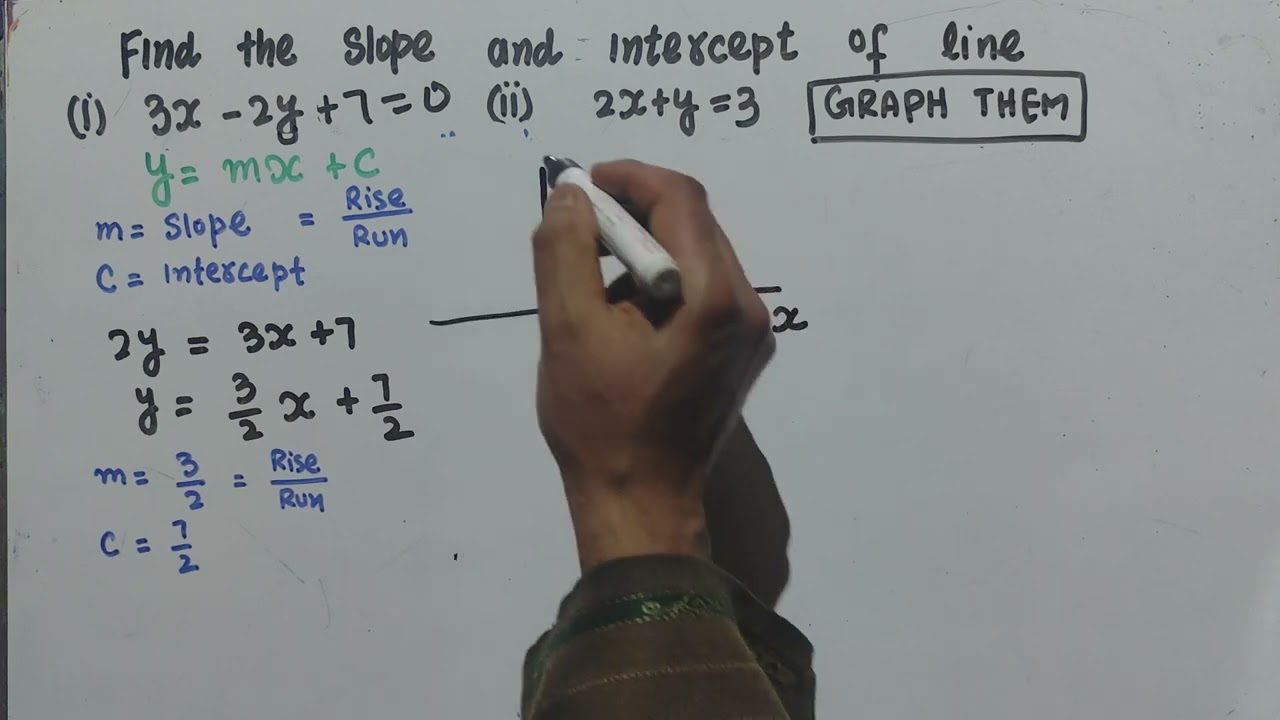 Find the Slope and intercept of line
(i) 3x - 2y + 7 = 0 (ii) 2x + y = 3 GRAPH THEM
y = mx + C
m = Slope = Rise/Run
C = Intercept
2y = 3x + 7
x
y = 3/2 x + 7/2
m = 3/2 = Rise/Run
C = 7/2